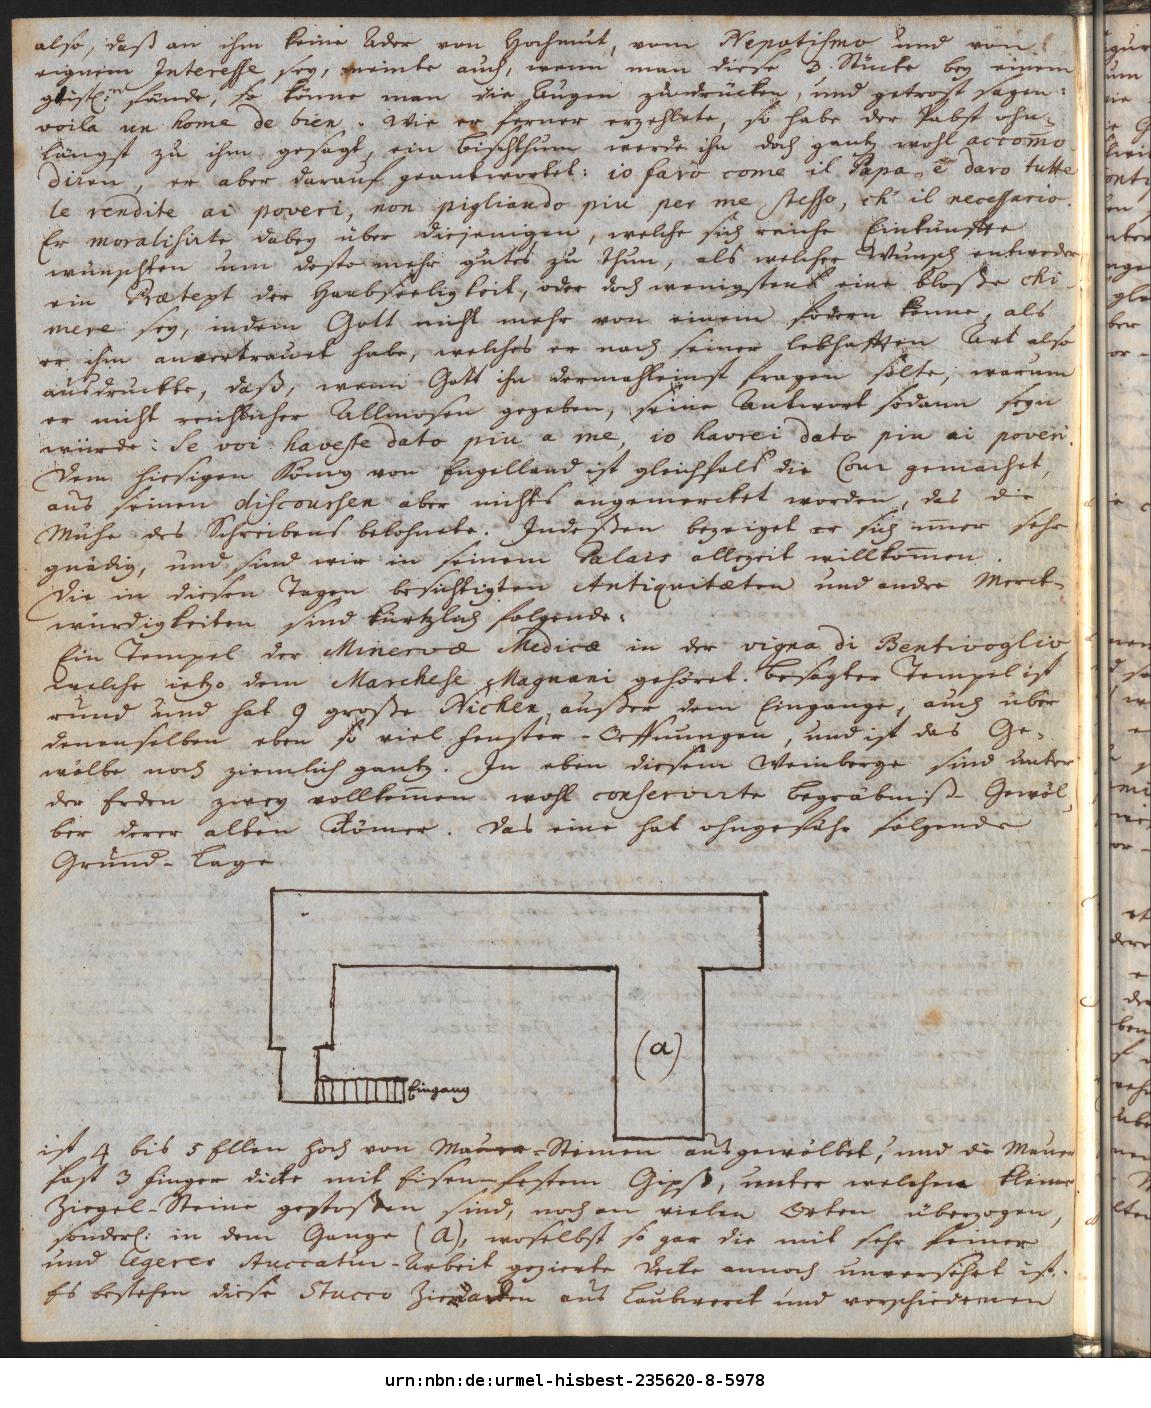 also, daß an ihm keine Ader von Hochmut, vom Nepotismo und von
eignem Interesse sey, meinte auch, wenn man diese 3. Stücke bey einem
geistl: fände, so könne man die Augen zudrücken, und getrost sagen:
voila un home de bien. Wie er ferner erzehlete, so habe der Pabst ohn-
längst zu ihm gesagt, ein Bischthum werde ihn doch gantz wohl accomo-
diren, er aber darauf geantwortet: io farò come il Papa, e daro tutte
le rendite ai poveri, non pigliando piu per me stesso, ch' il necessario.
Er moralisirte dabey über diejenigen, welche sich reiche Einkünfte
wünschten um desto mehr gutes zu thun, als welcher Wunsch entweder
ein Prætext der Habseeligkeit, oder doch wenigstens eine bloße chi-
mere sey, indem Gott nicht mehr von einem fodern könne, als
er ihm anvertrauet habe, welches er nach seiner lebhafften Art also
ausdruckte, daß, wenn Gott ihn dermahleinst fragen solte, warum
er nicht reichlicher Allmosen gegeben, seine Antwort sodann seyn
würde: Se voi haveste dato piu a me, io havrei dato piu ai poveri.
Dem hiesigen König von Engelland ist gleichfals die Cour gemachet,
aus seinen discoursen aber nichts angemercket worden, das die
Mühe des Schreibens belohnete. Indeßen bezeiget er sich immer sehr
gnädig, und sind wir in seinem Palais allezeit willkom̄en.
Die in diesen Tagen besichtigten Antiquitæten und andre Merck-
würdigkeiten sind kürtzlich folgende:
Ein Tempel der Minervæ Medicæ in der vigna di Bentivoglio
welche ietzo dem Marchese Magnani gehöret. Besagter Tempel ist
rund und hat 9 große Nichen, außer dem Eingange, auch über
denenselben eben so viel Fenster-Oeffnungen, und ist das Ge-
wölbe noch ziemlich gantz. In eben diesem Weinberge sind unter
der Erden zwey vollkom̄en wohl conservirte Begräbniß-Gewöl-
ber derer alten Römer. Das eine hat ohngefähr folgende
Grund-Lage
(a)
Eingang
ist 4 bis 5 Ellen hoch von Mauer-Steinen ausgewölbet, und die Mauer
fast 3 Finger dicke mit Eisenfestem Gipß, unter welchen kleine
Ziegel-Steine gestoßen sind, noch an vielen Orten überzogen,
sonderl: in dem Gange (a), woselbst so gar die mit sehr feiner
und legerer Stuccatur-Arbeit gezierte Decke annoch unversehrt ist.
Es bestehen diese Stucco Zierrathen aus Laubwerck und verschiedenen